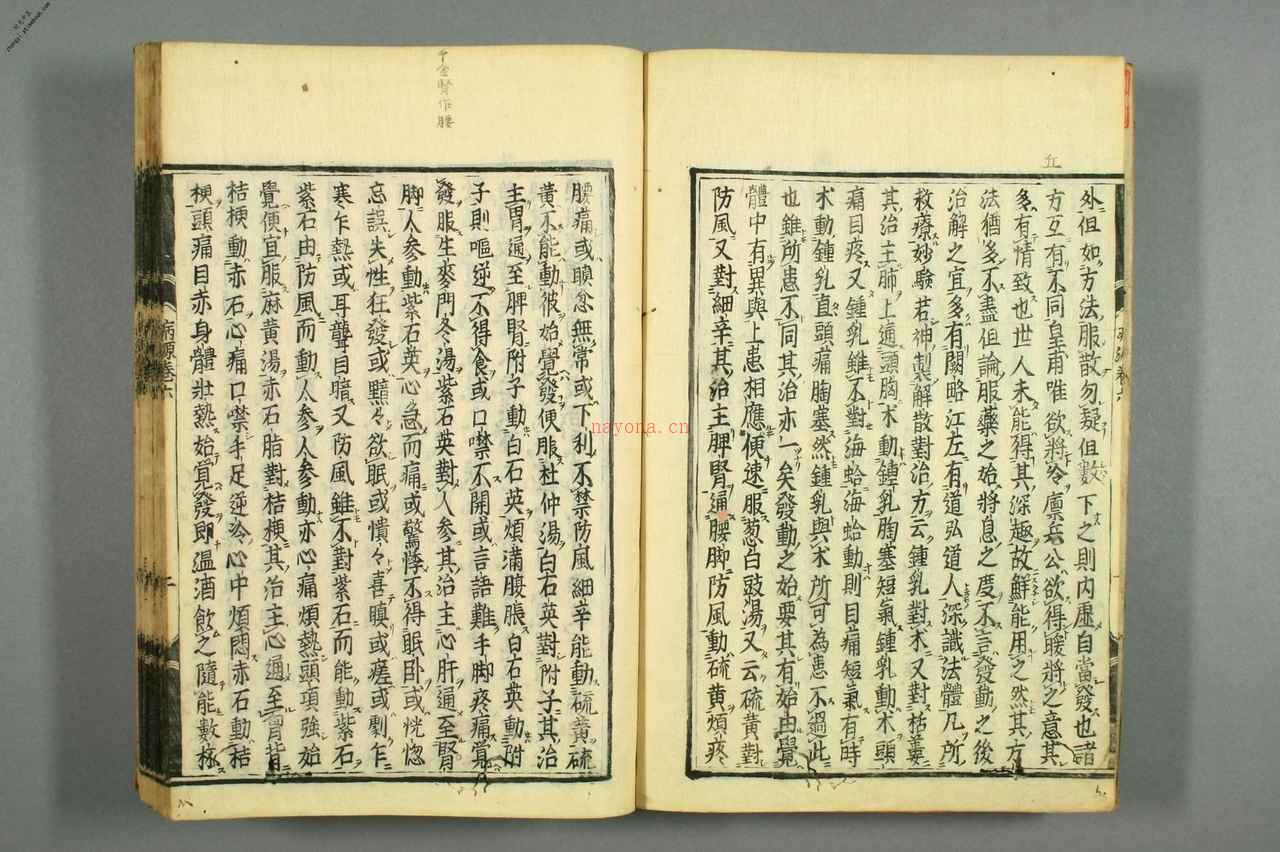 外但如方法服散勿疑但數下之則内虛自當發也諸
方互有不同皇甫唯欲將冷廩丘公欲得暖將之意其
多有情致也世人未能得其深趣故鮮能用之然其方
法猶多不盡但論服藥之始將息之度不言發動之後
治解之宜多有闕略江左有道弘道人深識法體凡所
救療妙驗若神製解散對治方云鍾乳對术又對栝蔞
其治主肺上通頭胸术動鍾乳胸塞短氣鍾乳動术頭
痛目疼又鍾乳雖不對海蛤海蛤動則目痛短氣有時
术動鍾乳直頭痛胸塞然鍾乳與术所可為患不過此
也雖所患不同其治亦一矣發動之始要其有始由覺
體中有異與上患相應便速服葱白豉湯又云硫黄對
防風又對細辛其治主脾腎通腰脚防風動硫黄煩疼
腰痛或瞋忿無常或下利不禁防風細辛能動硫黄硫
黄不能動彼始覺發便服杜仲湯白石英對附子其治
主胃通至脾腎附子動白石英煩滿腹脹白石英動附
子則嘔逆不得食或口噤不開或言語難手脚疼痛覺
發服生麥門冬湯紫石英對人參其治主心肝通至腎
脚人參動紫石英心急而痛或驚悸不得眠卧或恍惚
忘誤失性狂發或黯々欲眠或憒々喜瞋或瘥或劇乍
寒乍熱或耳聾目暗又防風雖不對紫石而能動紫石
紫石由防風而動人參人參動亦心痛煩熱頭項強始
覺便宜服麻黄湯赤石脂對桔梗其治主心通至胷背
桔梗動赤石心痛口噤手足逆冷心中煩悶赤石動桔
梗頭痛目赤身體壯熱始覺發即温酒飲之隨能數杯
病源卷六
二
千金腎作腰
丘
nayona.cn